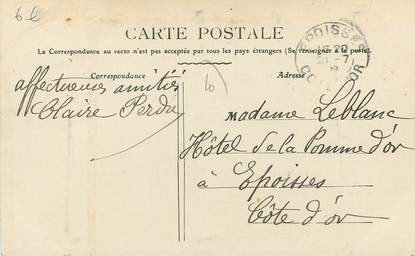 6€
CARTE POSTALE
La Correspondance au recto n'est pas acceptée par tous les pays étrangers (Se renseigner à la poste).
Correspondance
Adresse
EPOISSES
21 -7
CÔTE D'OR
affectueuses amitiés
Claire Perdu
madame Leblanc
Hôtel de la Pomme d'or
à Epoisses
Côte d'or